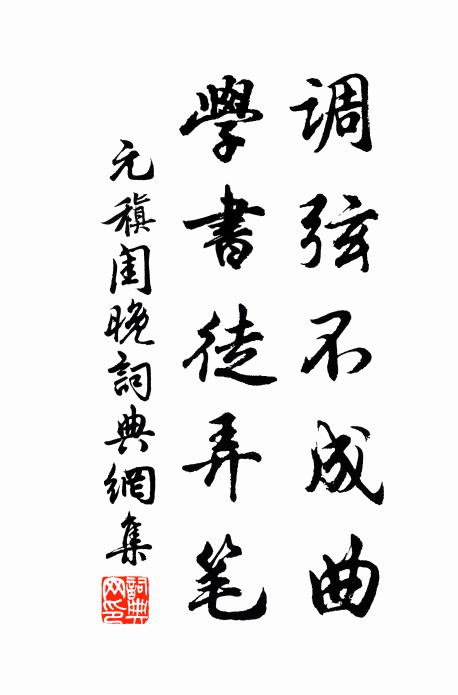 调弦不成曲
學書徒弄笔
元稹閨晚詞典網集
詞典网印